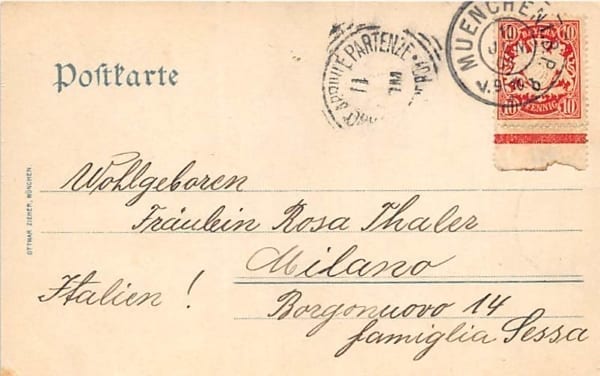 Postkarte
ARRIVI E PARTENZE
11
MUENCHEN
V. 9-10
10 10
BAYERN
10 PFENNIG 10
OTTMAR ZIEHER, MÜNCHEN
Wohlgeboren
Fräulein Rosa Thaler
Milano
Italien !
Borgonuovo 14
famiglia Sessa